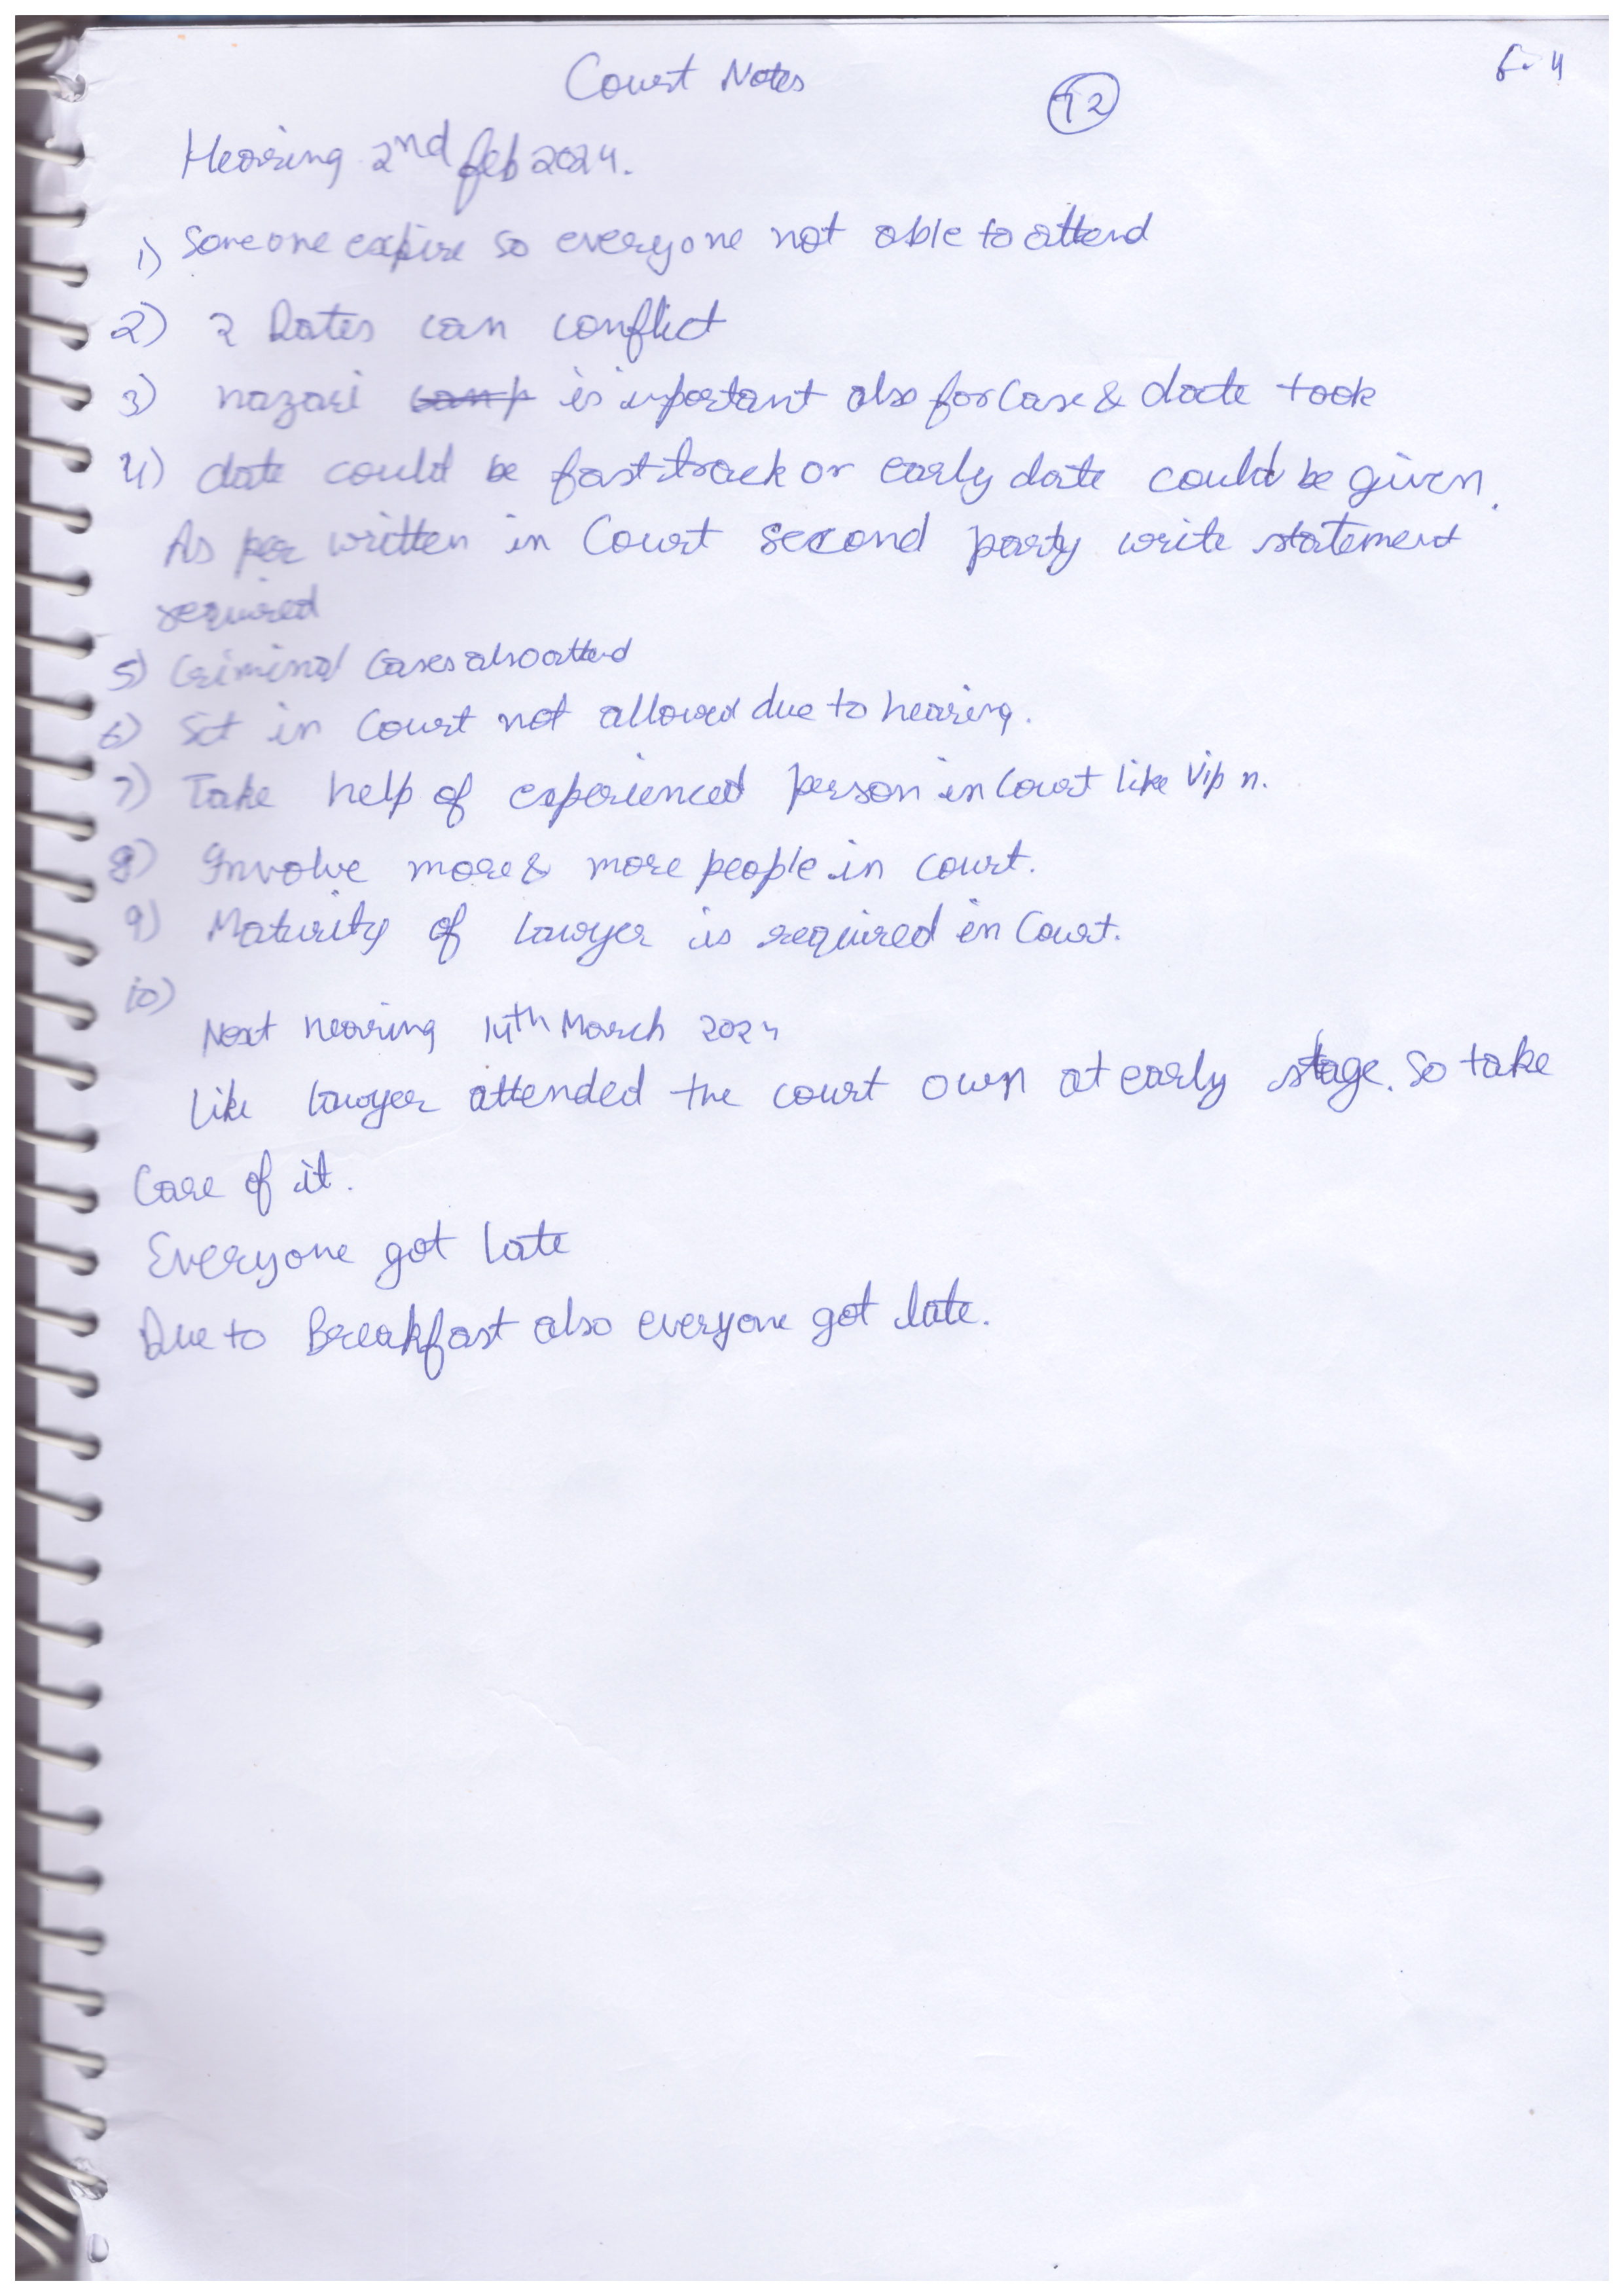 Court Notes
Hearing 2nd feb 2024.
1) Someone expire so everyone not able to attend
2) 2 Dates can conflict
3) nazari is important also for Case & date took
4) date could be fast track or early date could be given.
As per written in Court second party write statement
required
5) Criminal Cases also attend
6) Sit in Court not allowed due to hearing.
7) Take help of experienced person in Court like Vip n.
8) Involve more & more people in court.
9) Maturity of lawyer is required in Court.
10)
Next hearing 14th March 2024
Like lawyer attended the court own at early stage. So take
Care of it.
Everyone got late
Due to Breakfast also everyone got late.